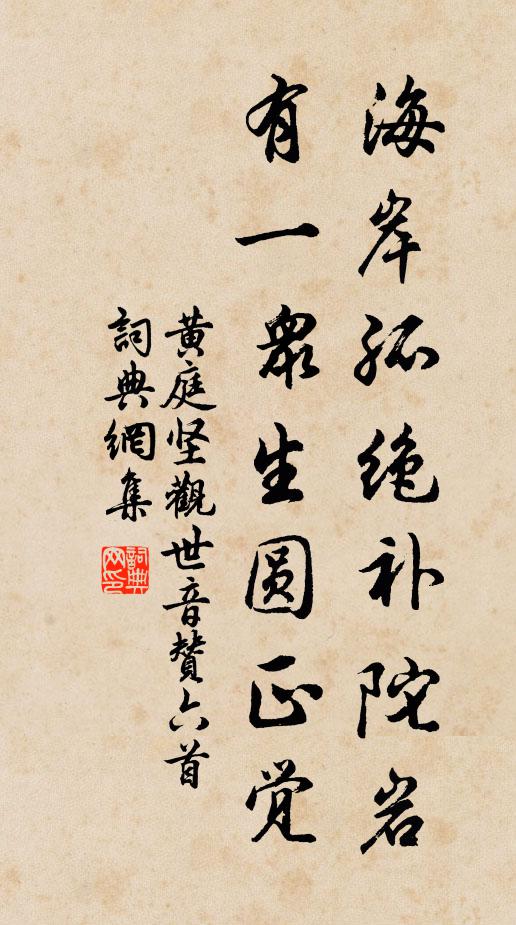 海岸孤绝补陀岩
有一眾生圆正觉
黄庭坚觀世音賛六首
詞典網集
詞典網印